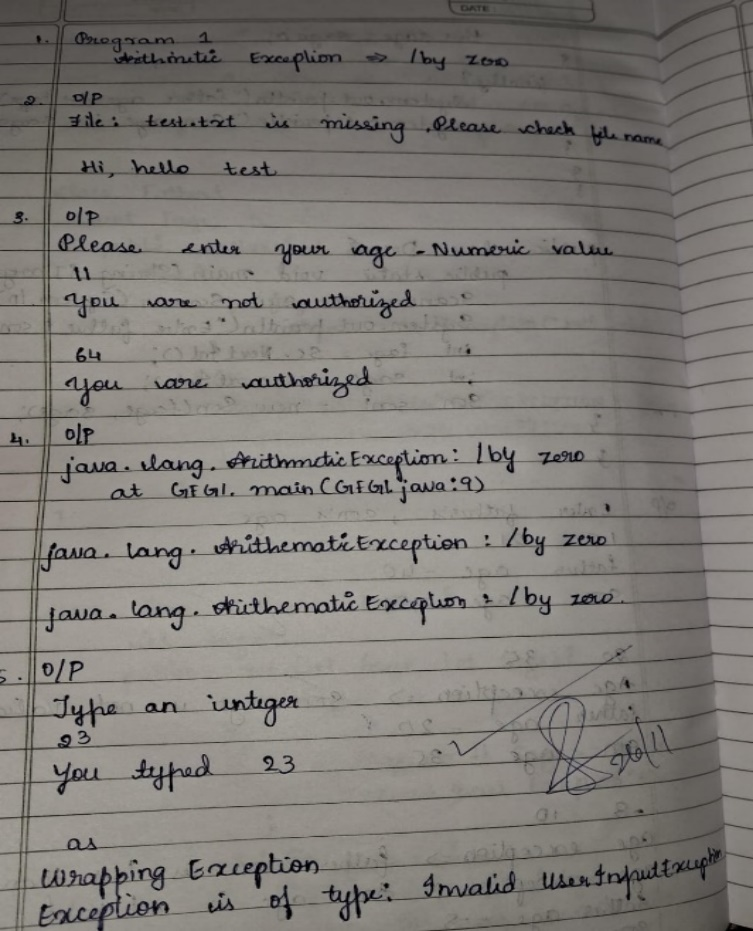 DATE
1. Program 1
Arithmetic Exception => / by zero
2. O/P
File: test.txt is missing. Please check file name
Hi, hello test
3. O/P
Please enter your age - Numeric value
11
You are not authorized
64
You are authorized
4. O/P
java.lang.ArithmeticException: / by zero
at GFG1.main(GFG1.java:9)
java.lang.ArithematicException: / by zero
java.lang.ArithematicException: / by zero.
5. O/P
Type an integer
23
You typed 23
26/11
as
Wrapping Exception
Exception is of type: Invalid UserInputException